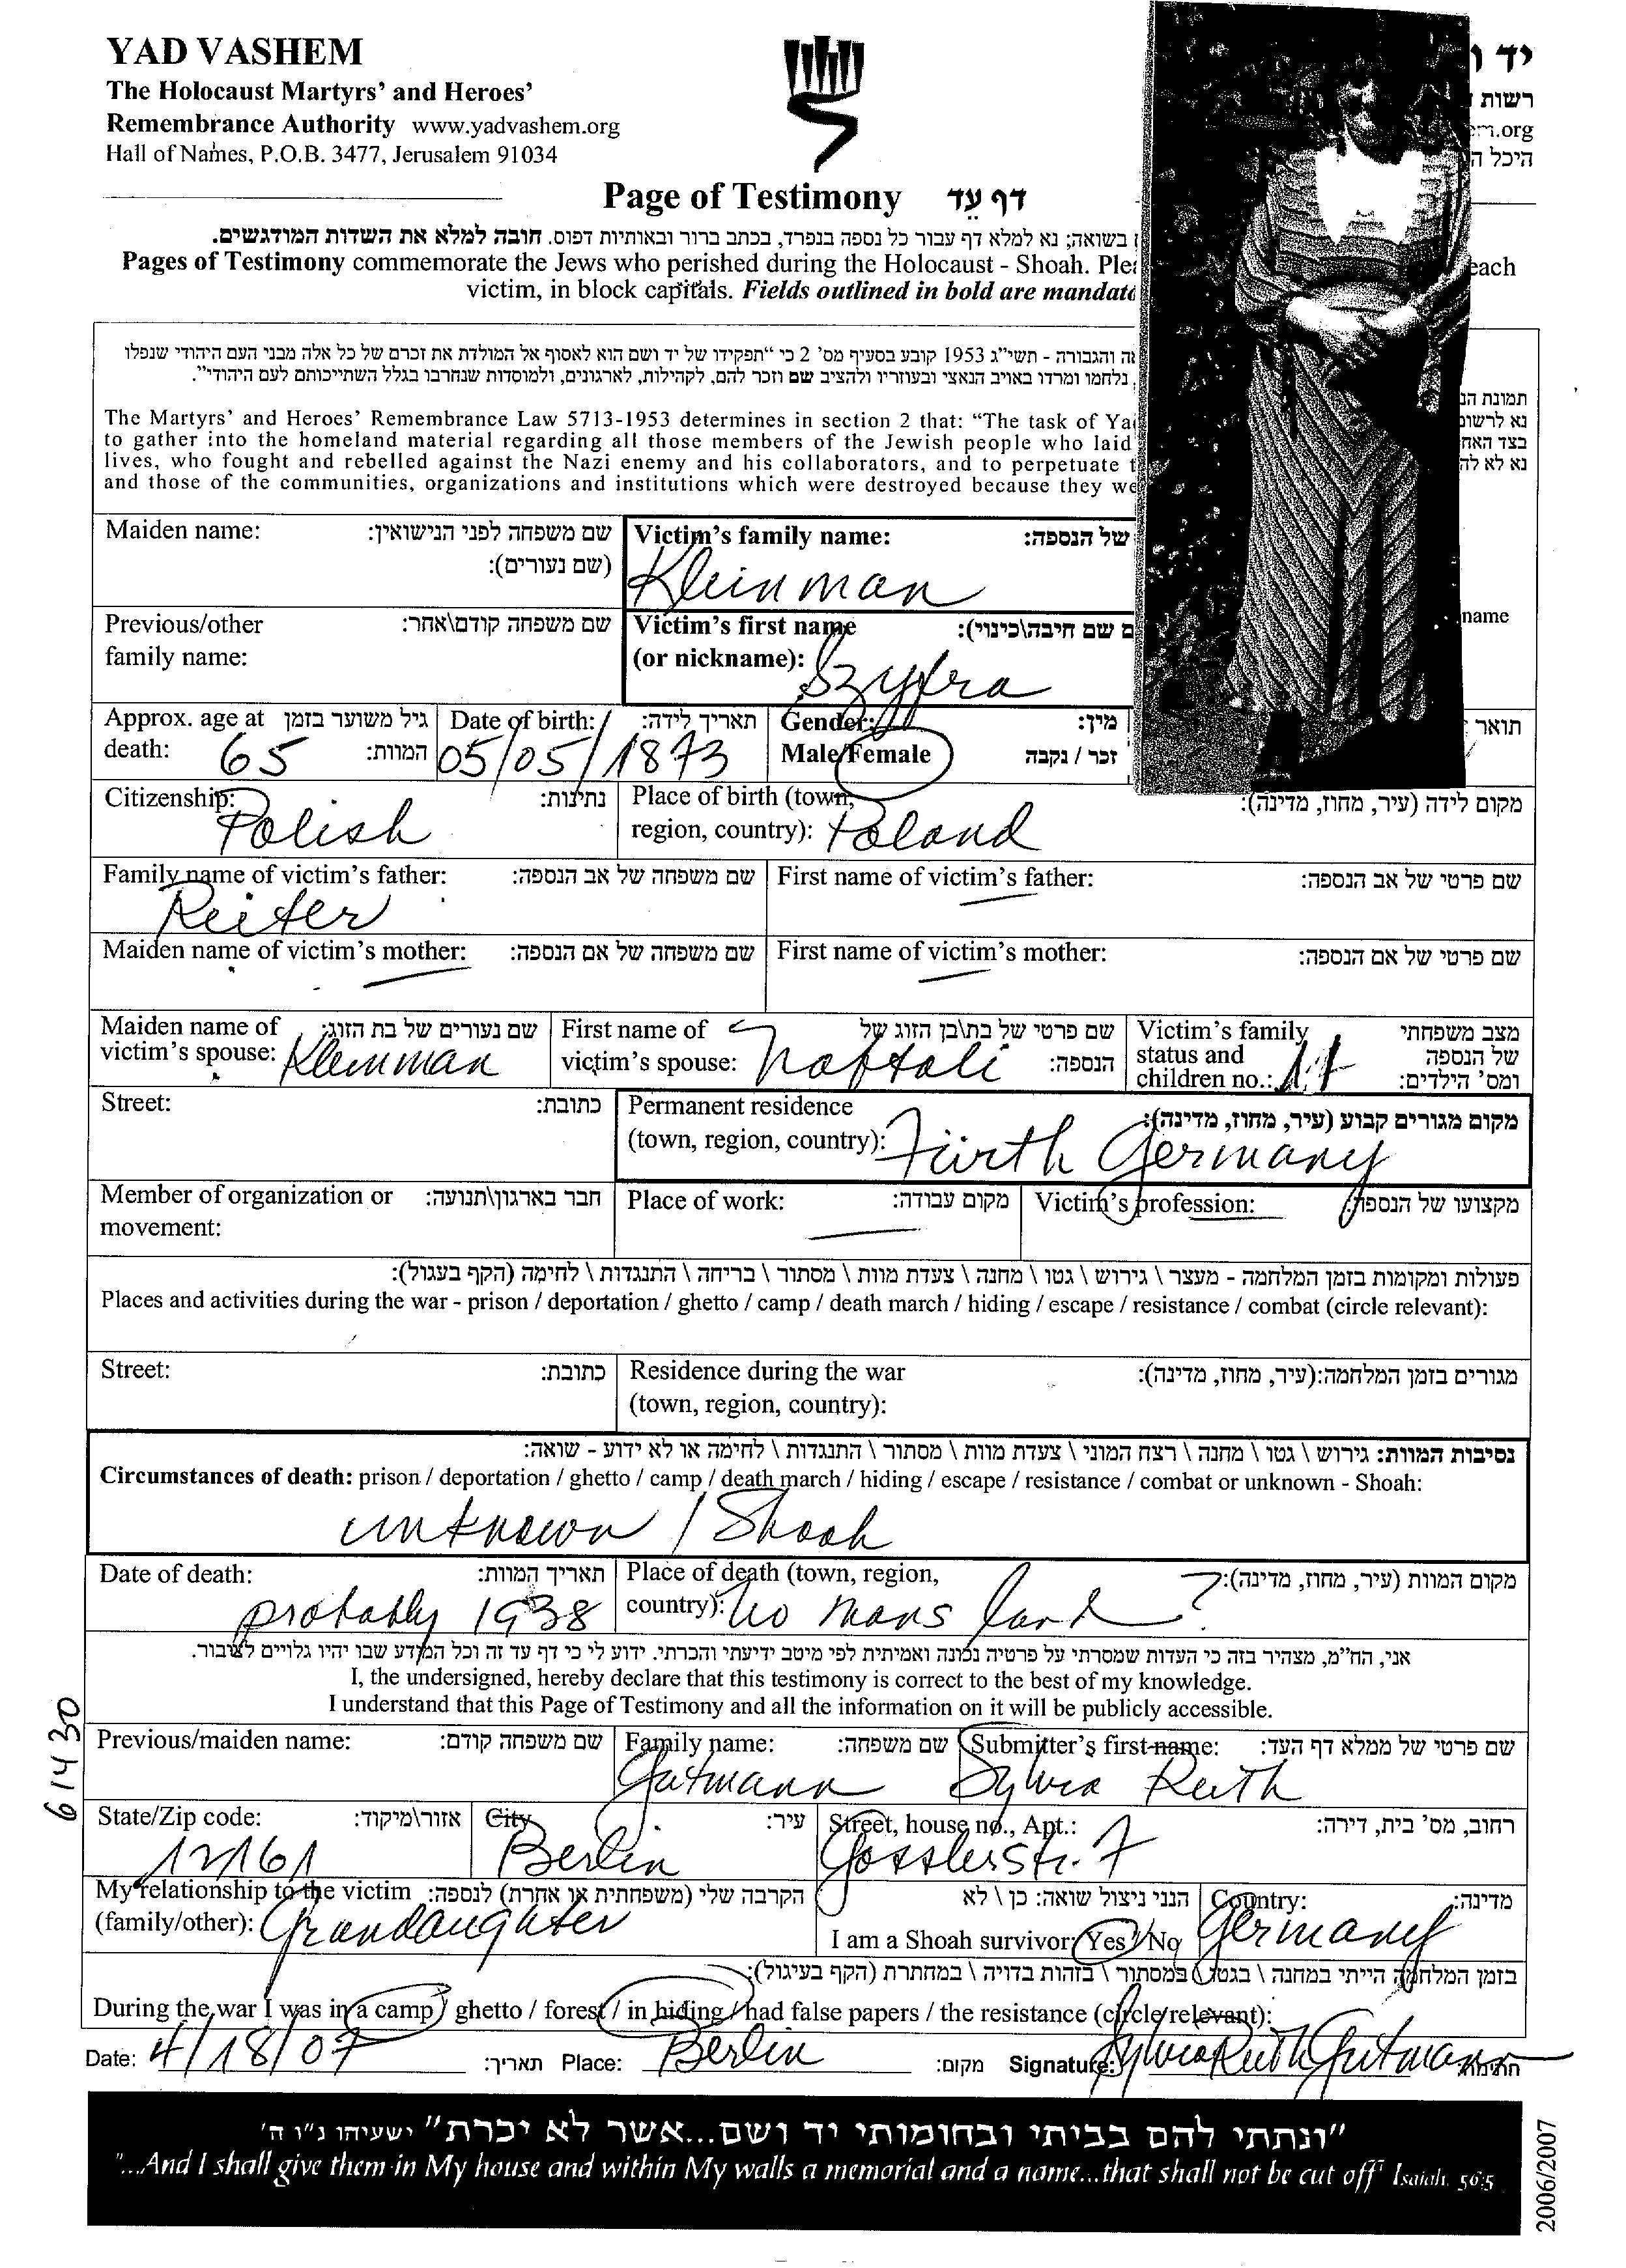 YAD VASHEM
The Holocaust Martyrs' and Heroes'
Remembrance Authority www.yadvashem.org
Hall of Names, P.O.B. 3477, Jerusalem 91034
יד ו
רשות
em.org
היכל ה
Page of Testimony דף עֵד
בשואה; נא למלא דף עבור כל נספה בנפרד, בכתב ברור ובאותיות דפוס. חובה למלא את השדות המודגשים.
Pages of Testimony commemorate the Jews who perished during the Holocaust - Shoah. Plea each
victim, in block capitals. Fields outlined in bold are mandato
אה והגבורה - תשי"ג 1953 קובע בסעיף מס' 2 כי "תפקידו של יד ושם הוא לאסוף אל המולדת את זכרם של כל אלה מבני העם היהודי שנפלו
נלחמו ומרדו באויב הנאצי ובעוזריו ולהציב שם וזכר להם, לקהילות, לארגונים, ולמוסדות שנחרבו בגלל השתייכותם לעם היהודי".
תמונת הנ
נא לרשום
בצד האח
נא לא לה
The Martyrs' and Heroes' Remembrance Law 5713-1953 determines in section 2 that: "The task of Ya
to gather into the homeland material regarding all those members of the Jewish people who laid
lives, who fought and rebelled against the Nazi enemy and his collaborators, and to perpetuate t
and those of the communities, organizations and institutions which were destroyed because they we
name
Maiden name: שם משפחה לפני הנישואין:
(שם נעורים):
Victim's family name: של הנספה:
Kleinman
Previous/other שם משפחה קודם\אחר:
family name:
Victim's first name ם שם חיבה\כינוי):
(or nickname): Szyfra
Approx. age at גיל משוער בזמן
death: 65 המוות:
Date of birth: תאריך לידה:
05/05/1873
Gender: מין:
Male/Female זכר / נקבה
תואר
Citizenship: נתינות:
Polish
Place of birth (town, מקום לידה (עיר, מחוז, מדינה):
region, country): Poland
Family name of victim's father: שם משפחה של אב הנספה:
Reiter
First name of victim's father: שם פרטי של אב הנספה:
Maiden name of victim's mother: שם משפחה של אם הנספה:
First name of victim's mother: שם פרטי של אם הנספה:
Maiden name of שם נעורים של בת הזוג:
victim's spouse: Kleinman
First name of שם פרטי של בת\בן הזוג של
victim's spouse: Naftali הנספה:
Victim's family מצב משפחתי
status and של הנספה
children no.: ומס' הילדים:
Street: כתובת:
Permanent residence מקום מגורים קבוע (עיר, מחוז, מדינה):
(town, region, country): Fürth Germany
Member of organization or חבר בארגון\תנועה:
movement:
Place of work: מקום עבודה:
Victim's profession: מקצועו של הנספה:
פעולות ומקומות בזמן המלחמה - מעצר \ גירוש \ גטו \ מחנה \ צעדת מוות \ מסתור \ בריחה \ התנגדות \ לחימה (הקף בעגול):
Places and activities during the war - prison / deportation / ghetto / camp / death march / hiding / escape / resistance / combat (circle relevant):
Street: כתובת:
Residence during the war מגורים בזמן המלחמה:(עיר, מחוז, מדינה):
(town, region, country):
נסיבות המוות: גירוש \ גטו \ מחנה \ רצח המוני \ צעדת מוות \ מסתור \ התנגדות \ לחימה או לא ידוע - שואה:
Circumstances of death: prison / deportation / ghetto / camp / death march / hiding / escape / resistance / combat or unknown - Shoah:
unknown / Shoah
Date of death: תאריך המוות:
probably 1938
Place of death (town, region, מקום המוות (עיר, מחוז, מדינה):
country): No mans land?
אני, הח"מ, מצהיר בזה כי העדות שמסרתי על פרטיה נכונה ואמיתית לפי מיטב ידיעתי והכרתי. ידוע לי כי דף עד זה וכל המידע שבו יהיו גלויים לציבור.
I, the undersigned, hereby declare that this testimony is correct to the best of my knowledge.
I understand that this Page of Testimony and all the information on it will be publicly accessible.
61430
Previous/maiden name: שם משפחה קודם:
Family name: שם משפחה:
Gutmann
Submitter's first name: שם פרטי של ממלא דף העד:
Sylvia Ruth
State/Zip code: אזור\מיקוד:
12161
City עיר:
Berlin
Street, house no., Apt.: רחוב, מס' בית, דירה:
Gosslerstr. 7
My relationship to the victim הקרבה שלי (משפחתית או אחרת) לנספה:
(family/other): Grandaughter
הנני ניצול שואה: כן \ לא
I am a Shoah survivor: Yes / No
Country: מדינה:
Germany
בזמן המלחמה הייתי במחנה \ בגטו \ במסתור \ בזהות בדויה \ במחתרת (הקף בעיגול):
During the war I was in a camp / ghetto / forest / in hiding / had false papers / the resistance (circle relevant):
Date: 4/18/07 תאריך: Place: Berlin מקום: Signature: Sylvia Ruth Gutmann חתימה
"ונתתי להם בביתי ובחומותי יד ושם...אשר לא יכרת" ישעיהו נ"ו ה'
"...And I shall give them in My house and within My walls a memorial and a name...that shall not be cut off" Isaiah. 56:5
2006/2007